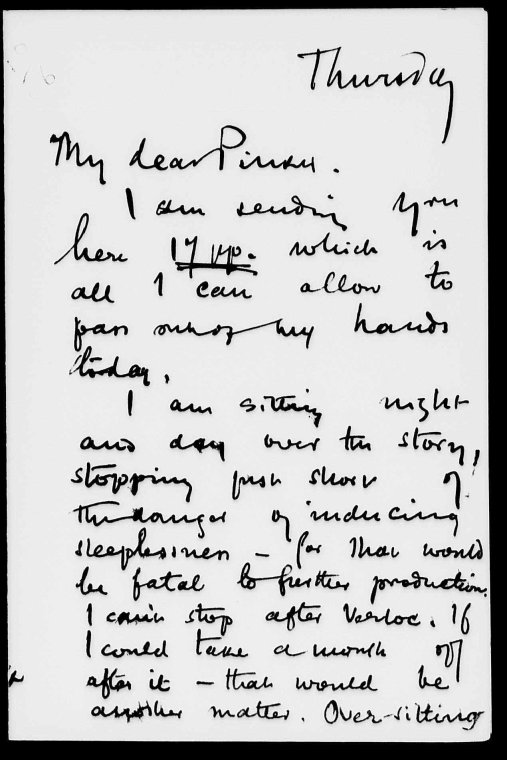 Thursday
My dear Pinker.
I am sending you
here 17 pp. which is
all I can allow to
pass out of my hands
today.
I am sitting night
and day over the story,
stopping just short of
the danger of inducing
sleeplessness – for that would
be fatal to further production.
I can't stop after Verloc. If
I could take a month off
after it – that would be
another matter. Over-sitting